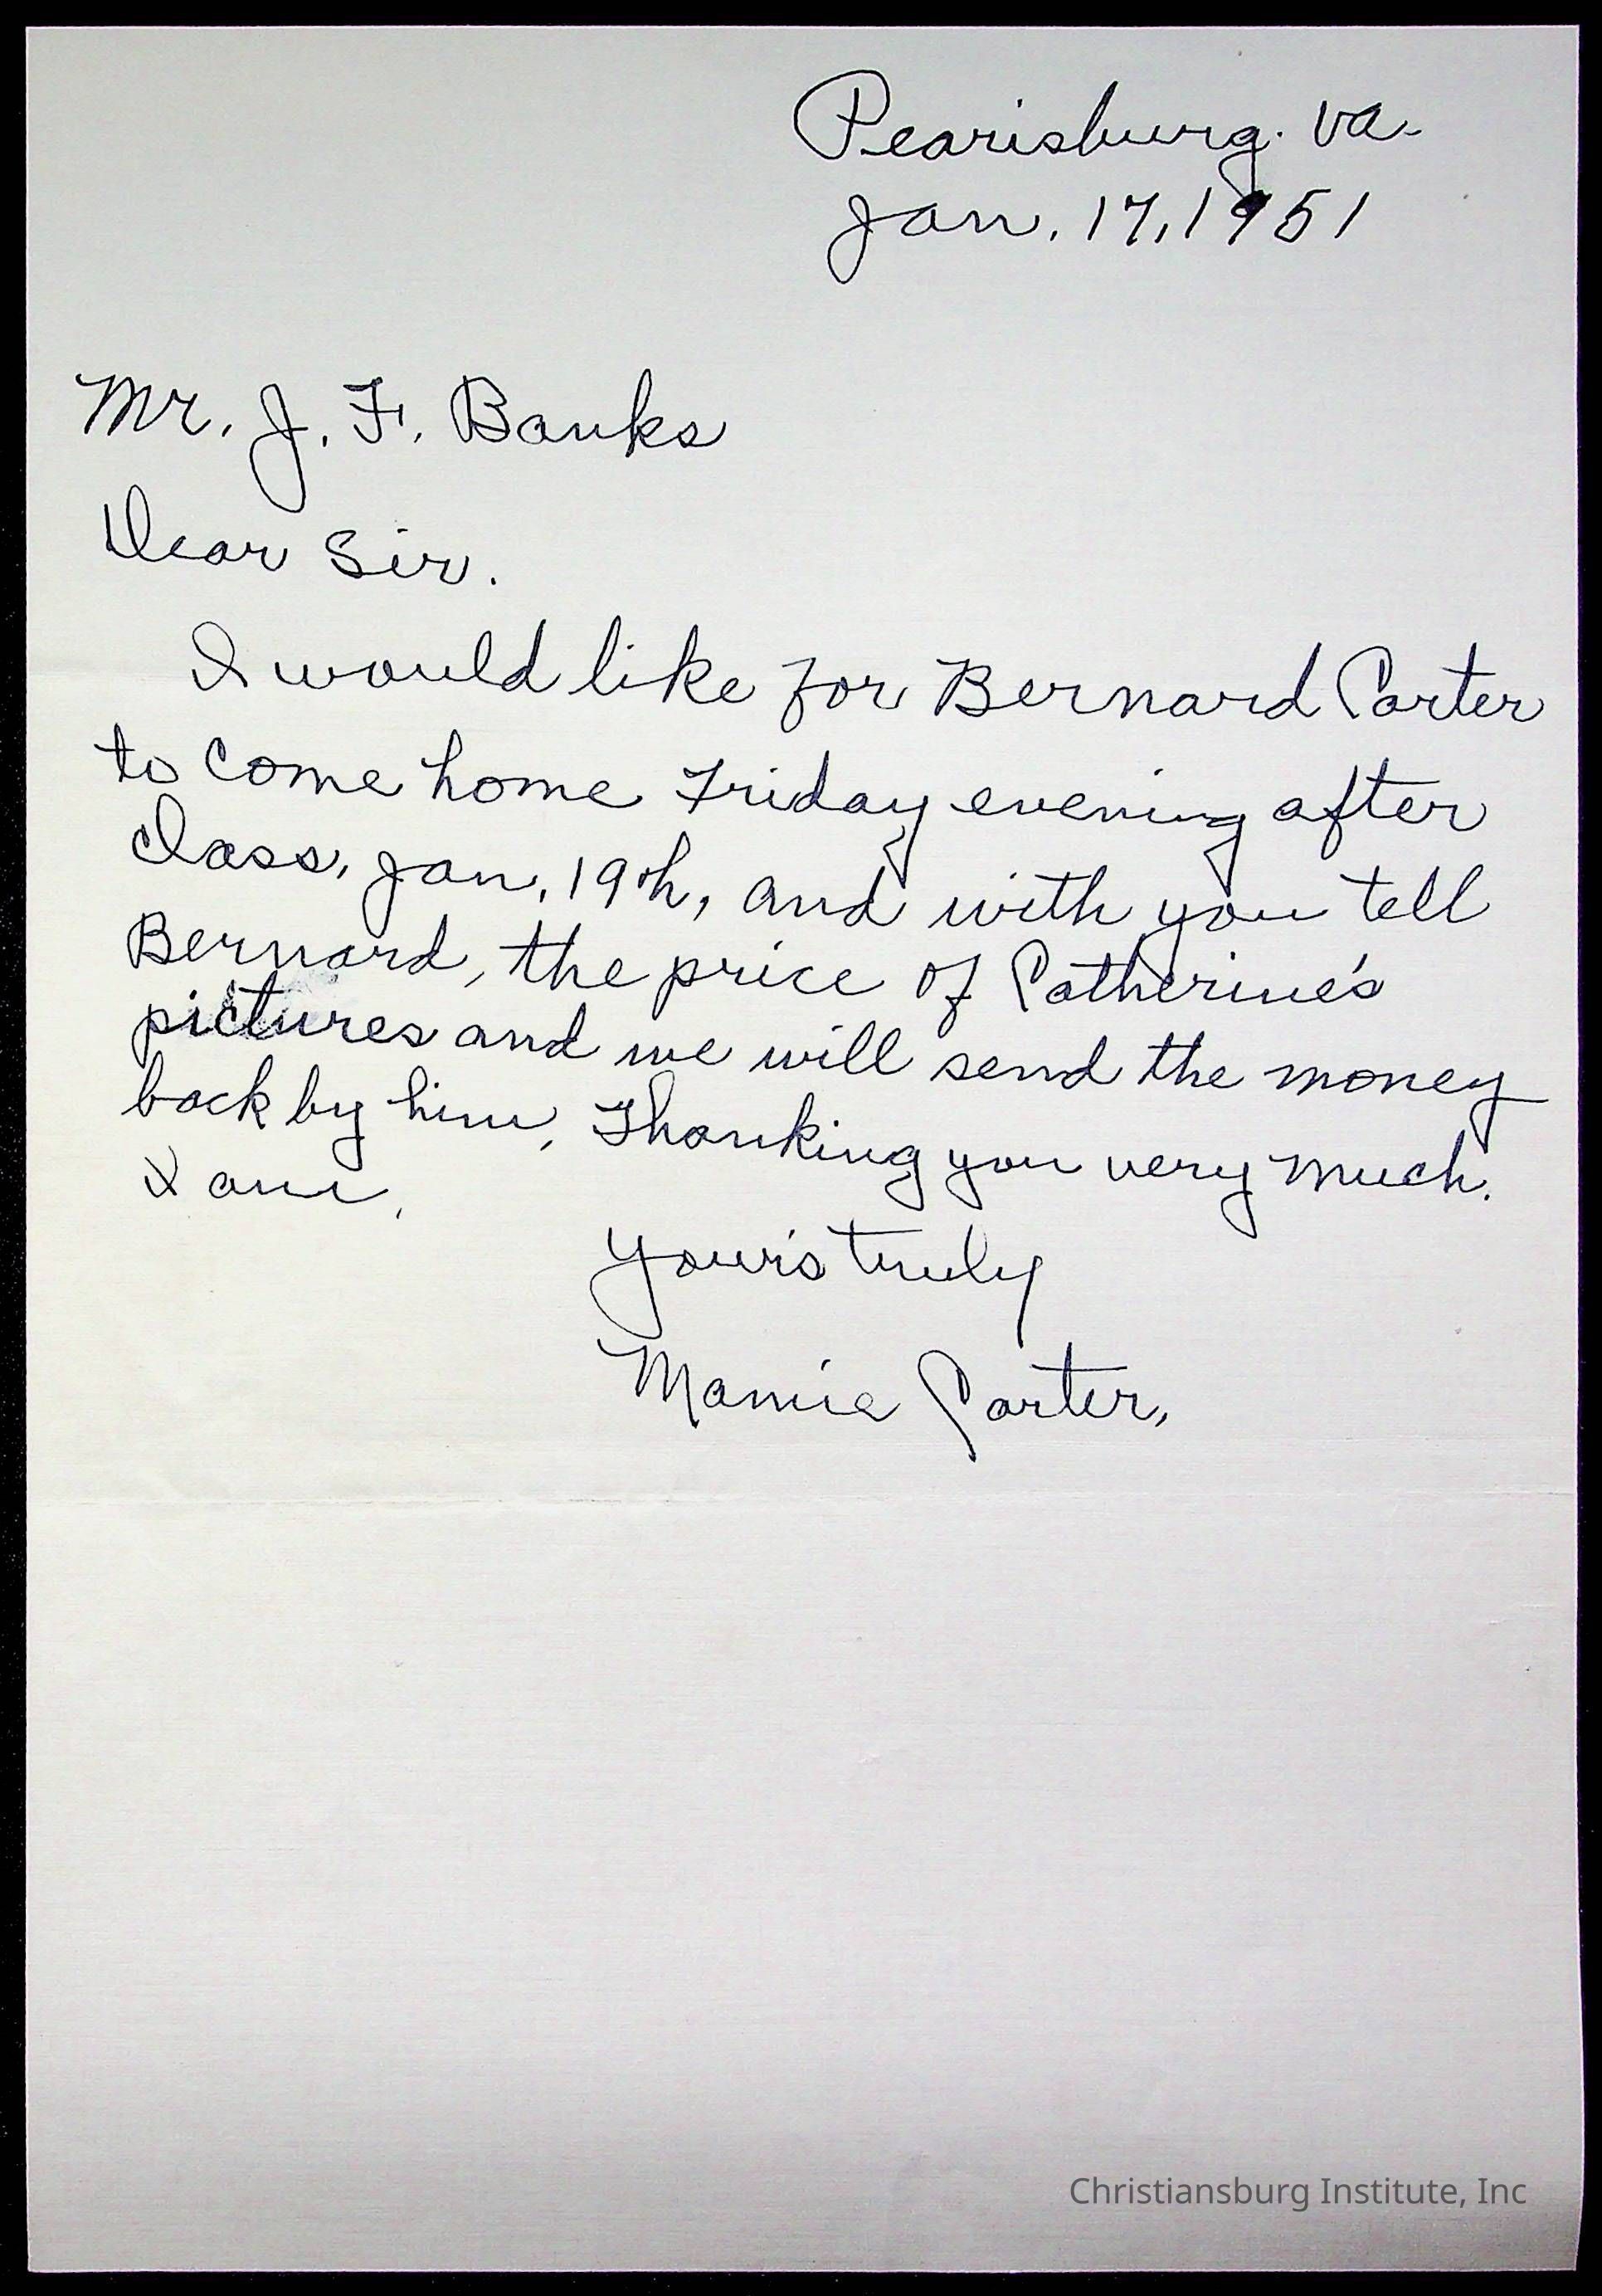 Pearisburg. Va.
Jan. 17, 1951
Mr. J. F. Banks
Dear Sir.
I would like for Bernard Carter
to Come home Friday evening after
Class, Jan. 19th, and with you tell
Bernard, the price of Catherine's
pictures and we will send the money
back by him, Thanking you very much.
I am,
Your's truly
Mamie Carter,
Christiansburg Institute, Inc